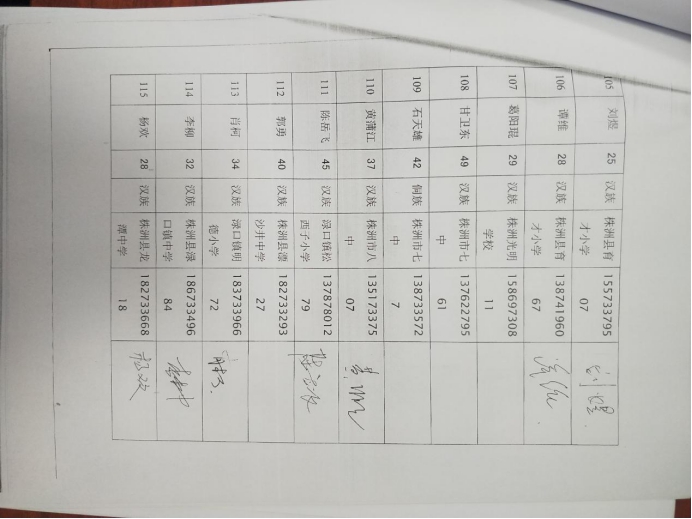 105 刘煜 25 汉族 株洲县育 155733795
才小学 07 刘煜
106 谭维 28 汉族 株洲县育 138741960
才小学 67
107 葛阳琨 29 汉族 株洲光明 158697308
学校 11
108 甘卫东 49 汉族 株洲市七 137622795
中 61
109 石天雄 42 侗族 株洲市七 138733572
中 7
110 黄蒲江 37 汉族 株洲市八 135173375
中 07
111 陈岳飞 45 汉族 渌口镇松 137878012
西子小学 79
112 郭勇 40 汉族 株洲县漂 182733293
沙井中学 27
113 肖柯 34 汉族 渌口镇明 183733966
德小学 72
114 李柳 32 汉族 株洲县绿 186733496
口镇中学 84
115 杨欢 28 汉族 株洲县龙 182733668
潭中学 18 杨欢